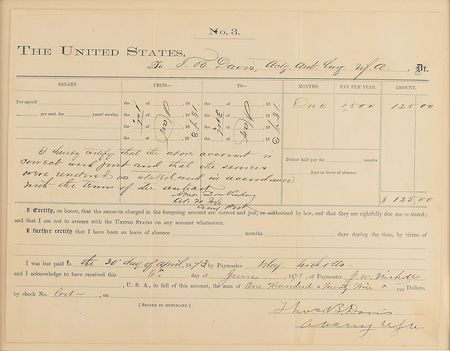 No. 3.
THE UNITED STATES,
To T. B. Davis, Actg. Asst. Surg. U.S.A., Dr.
SALARY. FROM— TO— MONTHS. PAY PER YEAR. AMOUNT.
For myself the 1st of May, 187 3 the 31st of May 187 3 One 1,500 125.00
per cent. for years' service. the of , 18 the of , 18
the of , 18 the of , 18
I hereby certify that the above account is
correct and just and that the services
were rendered as stated and in accordance
with the terms of his contract
Deduct half pay for months
days on leave of absence.
$ 125.00
I Certify, on honor, that the amounts charged in the foregoing account are correct and just, as authorized by law, and that they are rightfully due me as stated;
and that I am not in arrears with the United States on any account whatsoever.
I further certify that I have been on leave of absence months days during the time, by virtue of
I was last paid to the 30th day of April, 1873 by Paymaster Nicholls
and I acknowledge to have received this day of June, 187 , of Paymaster J. W. Nicholls
, U. S. A., in full of this account, the sum of One Hundred & Twenty Five Dollars,
by check No. , on
[SIGNED IN DUPLICATE.]
Thos B Davis